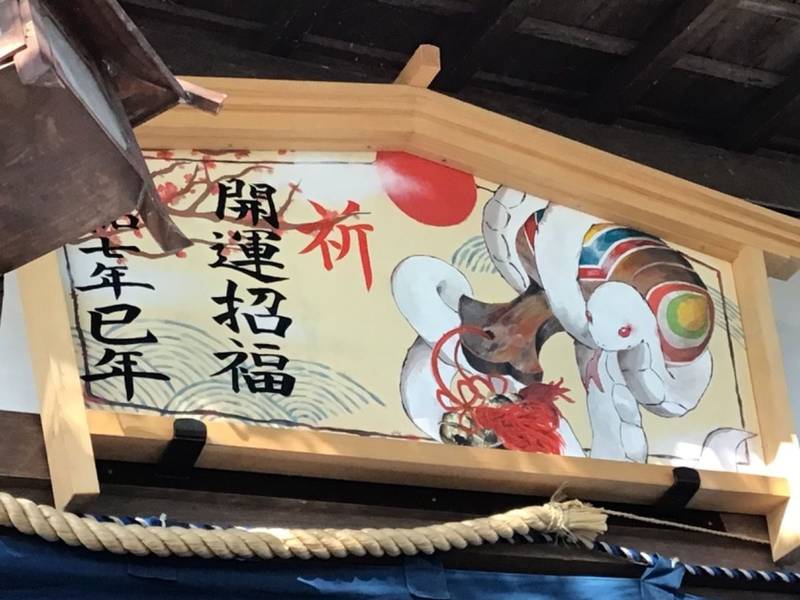 祈
開運招福
和七年巳年